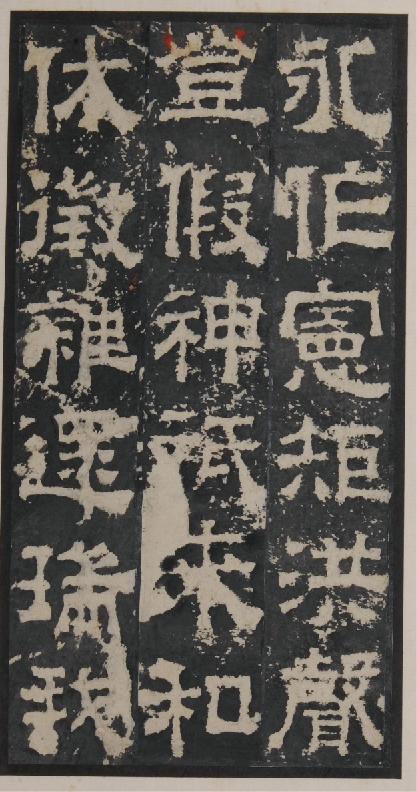 永作憲矩洪聲
登假神祇來和
休徵雜遝瑞我